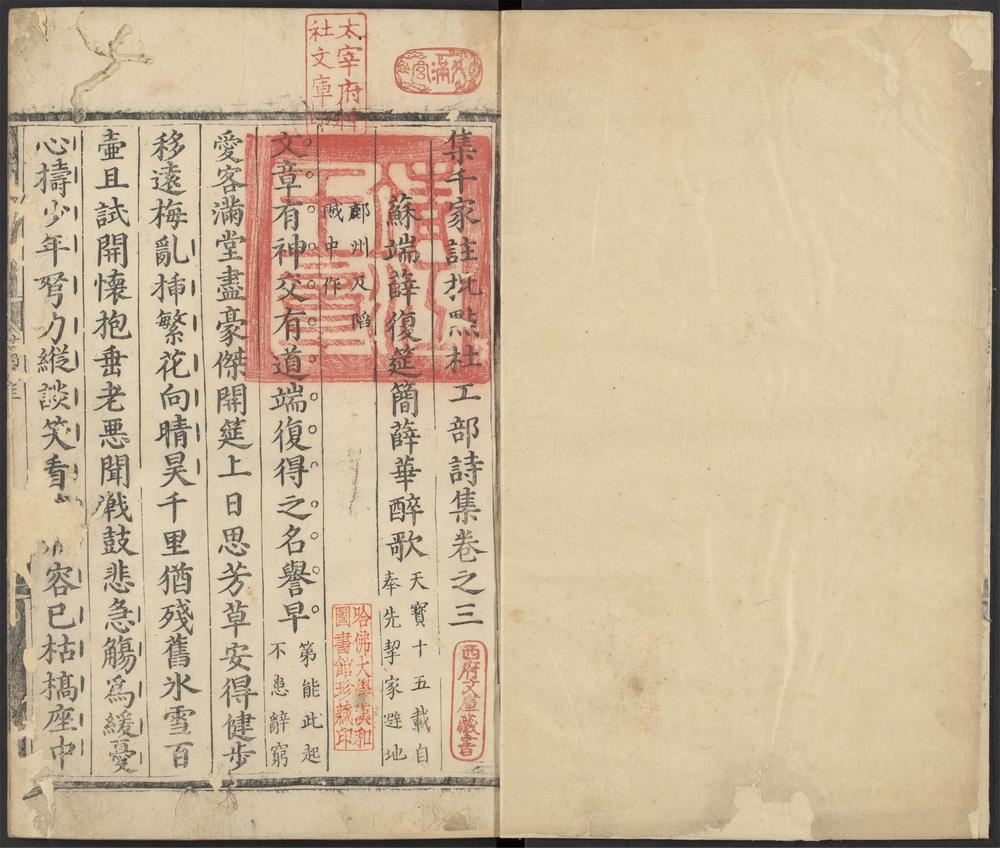 集千家註批點杜工部詩集卷之三
蘇端薛復筵簡薛華醉歌 天寶十五載自
奉先挈家避地
鄜州及陷
賊中作
文章有神交有道端復得之名譽早 第能此起
不患辭窮
愛客滿堂盡豪傑開筵上日思芳草安得健步
移遠梅亂揷繁花向晴昊千里猶殘舊氷雪百
壷且試開懷抱垂老悪聞戰鼓悲急觴爲緩憂
心擣少年努力縱談笑看 容已枯槁座中
太宰府神
社文庫
西府文庫藏書
哈佛大學漢和
圖書館珍藏印